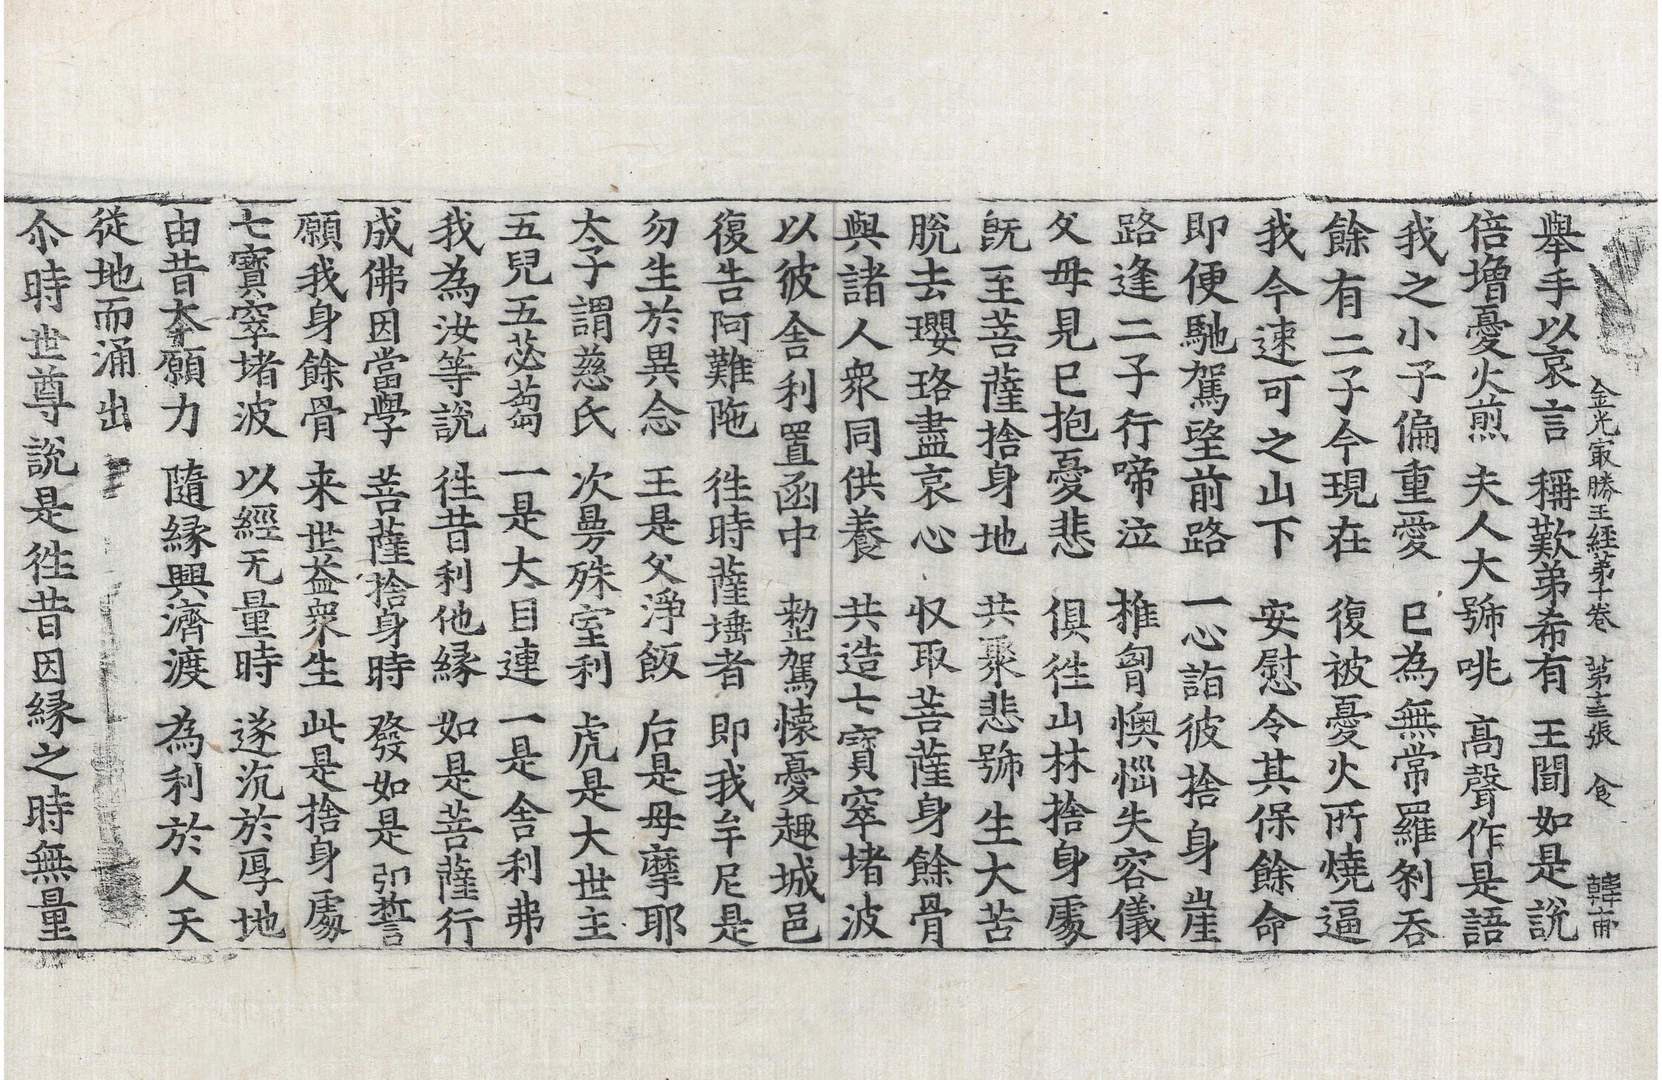 金光㝡勝王經第十卷 第十三張 食 韓甫
舉手以哀言 稱歎弟希有 王聞如是說
倍增憂火煎 夫人大號咷 高聲作是語
我之小子偏重愛 已為無常羅剎吞
餘有二子今現在 復被憂火所燒逼
我今速可之山下 安慰令其保餘命
即便馳駕望前路 一心詣彼捨身崖
路逢二子行啼泣 搥胷懊惱失容儀
父母見已抱憂悲 俱往山林捨身處
旣至菩薩捨身地 共聚悲號生大苦
脫去瓔珞盡哀心 収取菩薩身餘骨
與諸人衆同供養 共造七寶窣堵波
以彼舍利置函中 整駕懷憂趣城邑
復告阿難陁 往時薩埵者 即我牟尼是
勿生於異念 王是父淨飯 后是母摩耶
太子謂慈氏 次曼殊室利 虎是大世主
五兒五苾蒭 一是大目連 一是舍利弗
我為汝等說 往昔利他緣 如是菩薩行
成佛因當學 菩薩捨身時 發如是弘誓
願我身餘骨 来世益衆生 此是捨身處
七寶窣堵波 以經无量時 遂沉於厚地
由昔本願力 隨緣興濟渡 為利於人天
從地而涌出
尒時世尊說是往昔因緣之時無量